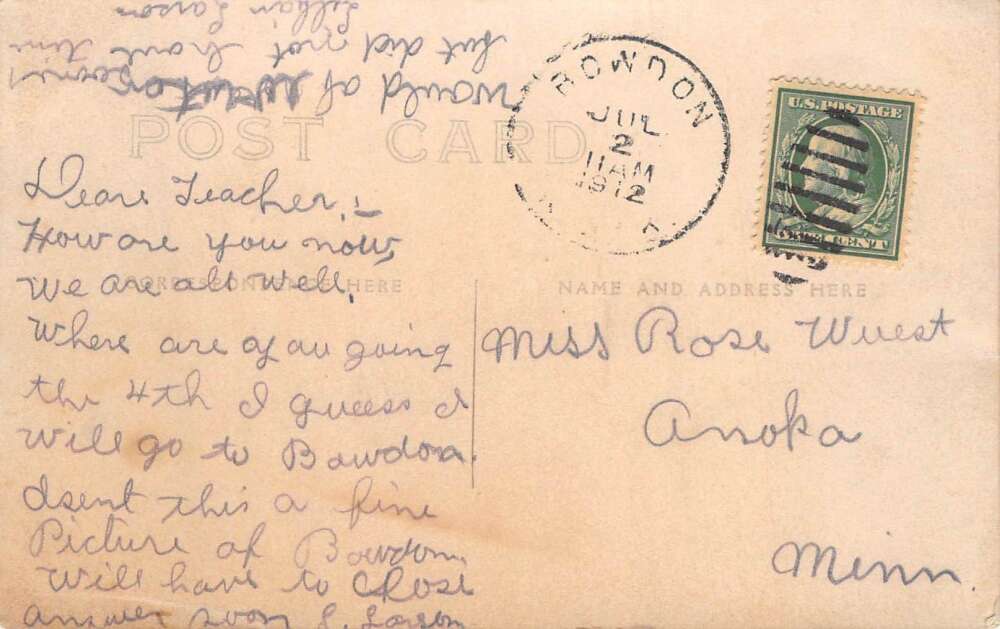 would of wrote sooner
but did not have time
Lillian Larson
POST CARD
BOWDON
JUL
2
11 AM
1912
U.S. POSTAGE
ONE CENT
Dear Teacher:—
How are you now,
CORRESPONDENCE HERE
We are all well.
Where are you going
the 4th I guess I
will go to Bowdon.
dsent this a fine
Picture of Bowdon.
Will have to Close
answer soon L. Larson
NAME AND ADDRESS HERE
Miss Rose Wuest
Anoka
Minn.